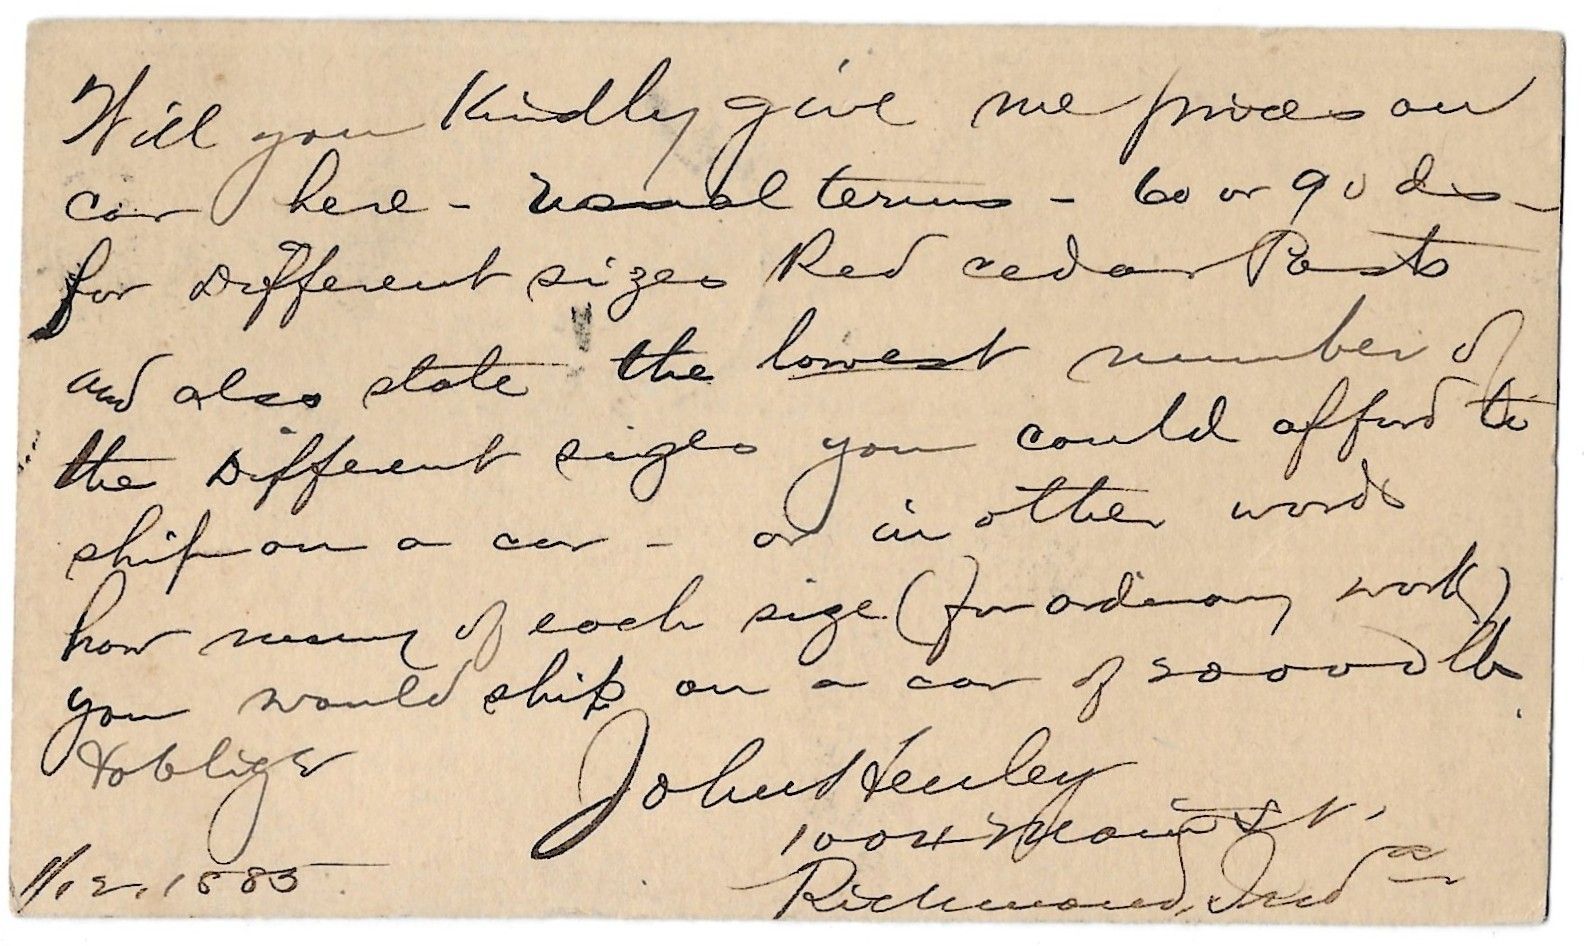 Will you Kindly give me prices on
car here - usual terms - 60 or 90 ds -
for Different sizes Red cedar Posts
and also state the lowest number of
the Different sizes you could afford to
ship on a car - or in other words
how many of each size (for ordinary work)
you would ship on a car of 20000 lbs
& oblige
John Henley
1004 Main St.
Richmond, Inda
11/12, 1885